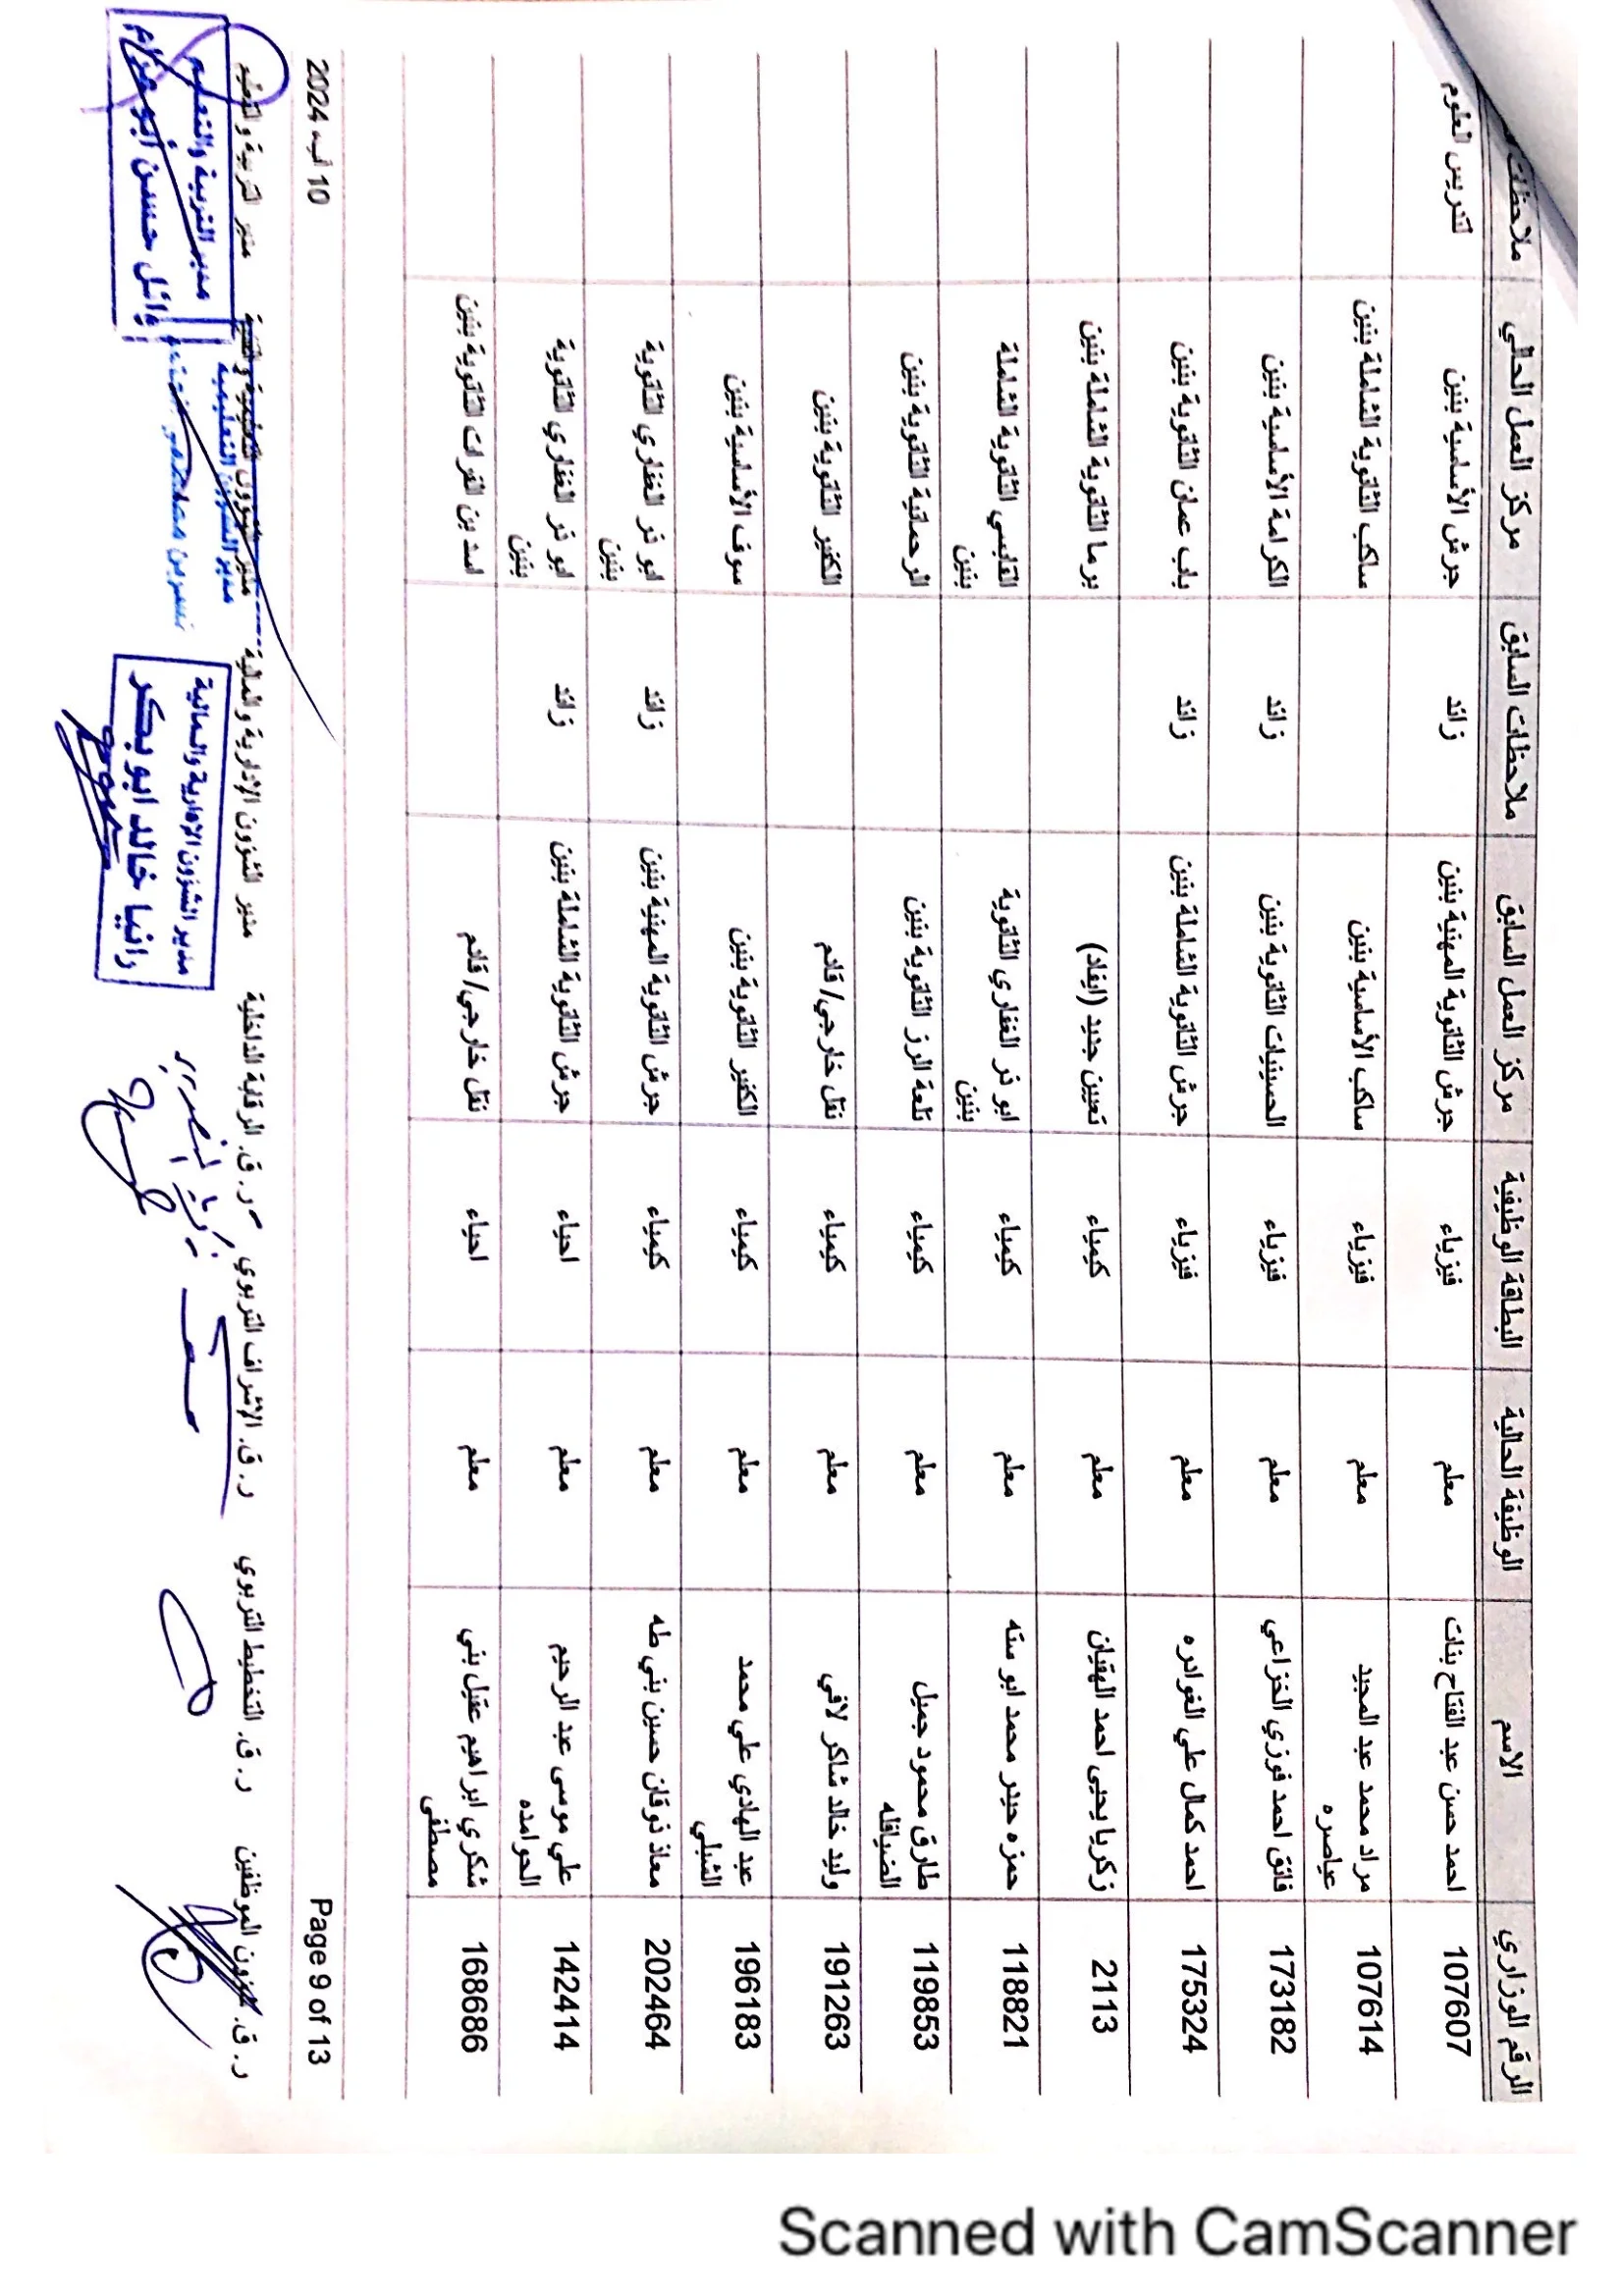 الرقم الوزاري الاسم الوظيفة الحالية البطاقة الوظيفية مركز العمل السابق ملاحظات السابق مركز العمل الحالي
107607 احمد حسن عبد الفتاح بنات معلم فيزياء جرش الثانوية المهنية بنين زائد جرش الأساسية بنين لتدريس العلوم
107614 مراد محمد عبد المجيد معلم فيزياء ساكب الأساسية بنين ساكب الثانوية الشاملة بنين
عياصره
173182 فائق احمد فوزي الخزاعي معلم فيزياء الحسينيات الثانوية بنين زائد الكرامة الأساسية بنين
175324 احمد كمال علي الغوادره معلم فيزياء جرش الثانوية الشاملة بنين زائد باب عمان الثانوية بنين
2113 زكريا يحيى احمد الهقيان معلم كيمياء تعيين جديد (ايفاد) برما الثانوية الشاملة بنين
118821 حمزه حيدر محمد ابو سته معلم كيمياء ابو ذر الغفاري الثانوية القابسي الثانوية الشاملة
بنين بنين
119853 طارق محمود جميل معلم كيمياء تلعة الرز الثانوية بنين الرحمانية الثانوية بنين
الضياقله
191263 وليد خالد شاكر لافي معلم كيمياء نقل خارجي/ قادم الكفير الثانوية بنين
196183 عبد الهادي علي محمد معلم كيمياء الكفير الثانوية بنين سوف الأساسية بنين
الشبلي
202464 معاذ نوفان حسين بني طه معلم كيمياء جرش الثانوية المهنية بنين زائد ابو ذر الغفاري الثانوية
بنين
142414 علي موسى عبد الرحيم معلم احياء جرش الثانوية الشاملة بنين زائد ابو ذر الغفاري الثانوية
الحوامده بنين
168686 شكري ابراهيم عقيل بني معلم احياء نقل خارجي/ قادم اسد بن الفرات الثانوية بنين
مصطفى
Page 9 of 13 10 آب 2024
ر. ق. شؤون الموظفين ر. ق. التخطيط التربوي ر. ق. الاشراف التربوي ر. ق. الرقابة الداخلية مدير الشؤون الإدارية والمالية مدير الشؤون التعليمية والفنية مدير التربية والتعليم
مدير الشؤون الادارية والمالية
رانيا خالد ابو بكر
مدير الشؤون التعليمية
نسرين مصطفى
مدير التربية والتعليم
وائل حسن ابو عزام
Scanned with CamScanner